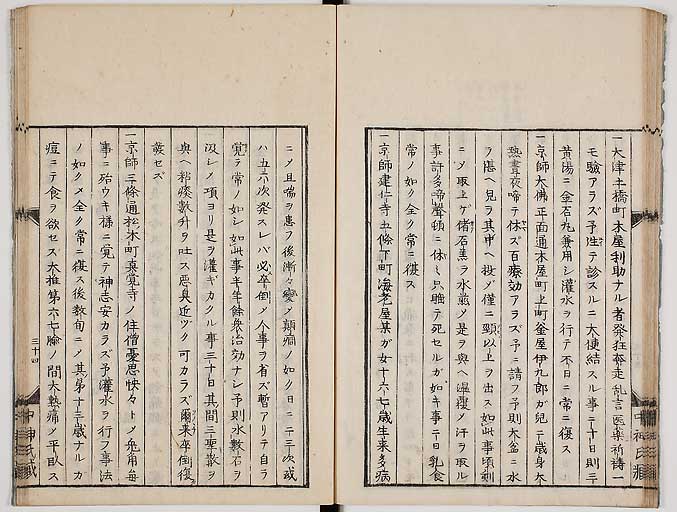 一大津キ橋町本屋利助ナル者発狂奔走乱言医薬祈禱一
モ験アラズ予往テ診スルニ大便結スル事二十日則三
黄湯ニ金石丸兼用シ灌水ヲ行テ不日ニ常ニ復ス
一京師大佛正面通本屋町上町釜屋伊九郎ガ児二歳身大
熱昼夜啼テ休ズ百療効アラズ予ニ請フ予則大盆ニ水
ヲ湛ヘ児ヲ其中ヘ投ノ僅ニ頸以上ヲ出ス如此事頃刻
ニノ取上ゲ偖石羔ヲ水煎ノ是ヲ與ヘ温覆ノ汗ヲ取ル
事許多啼聲頓ニ休ミ只睡テ死セルガ如キ事二日乳食
常ノ如ク全ク常ニ復ス
一京師建仁寺五條下町海老屋某ガ女十六七歳生来多病
ニノ且喘ヲ患フ後漸々変ノ癲癇ノ如ク日ニ二三次或
ハ五六次発スレバ必卒倒ノ人事ヲ省ズ暫アリテ自ラ
覚テ常ノ如シ如此事半年餘衆治効ナシ予則水数石ヲ
汲シノ項ヨリ是ヲ灌ギカクル事三十日其間三聖散ヲ
與ヘ粘痰数升ヲ吐ス悪臭近ヅク可カラズ爾来卒倒復
發セズ
一京師三條通松木町真覚寺ノ住僧憂思怏々トノ兎角毎
事ニ殆ウキ様ニ覚テ神志安カラズ予灌水ヲ行フ事法
ノ如クメ全ク常ニ復ス後数旬ニノ其第十三歳ナルカ
痘ニテ食ヲ欲セズ大推第六七腧ノ間大熱痛ノ平臥ス
三十四
中神氏蔵
中神氏蔵